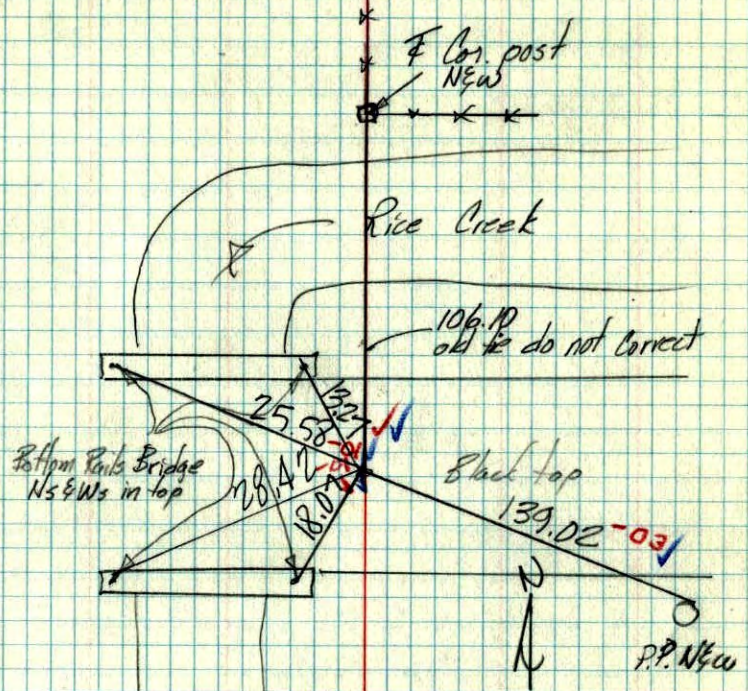 Cor. post
N&W
Rice Creek
106.10
old tie do not correct
13.27
25.58
28.42
18.07
Bottom Rails Bridge
Ns & Ws in top
Black top
139.02 -03
N
P.P. N&W